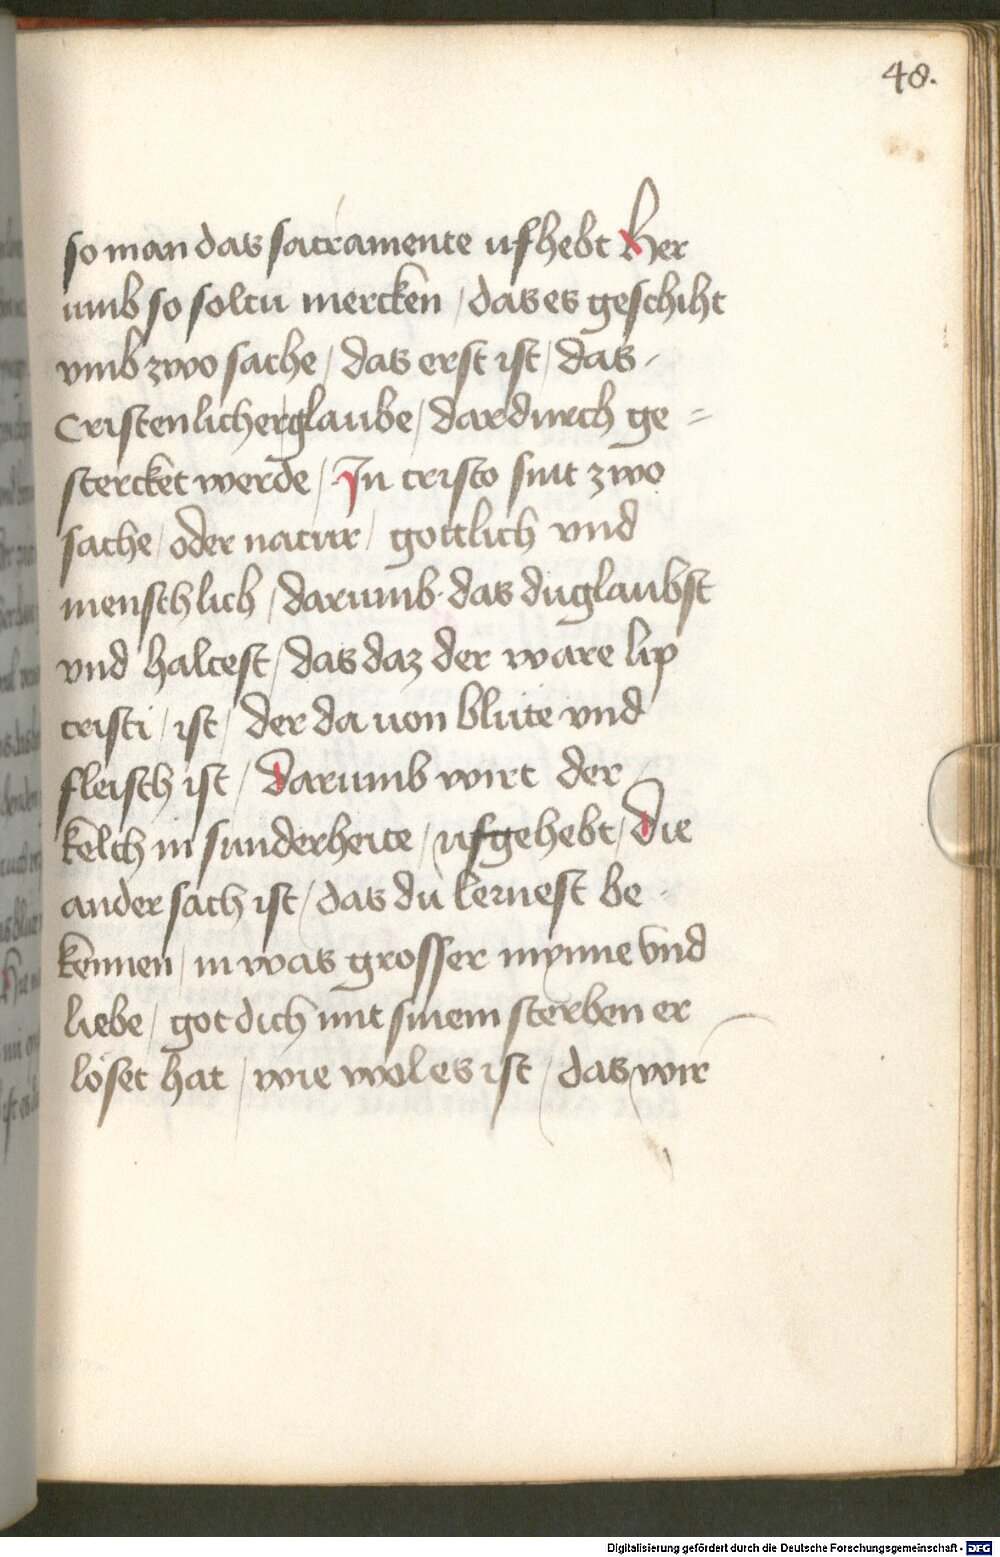 48.
so man das sacramente ufhebt Her
umb so soltu mercken / das es geschiht
vmb zwo sache / das erst ist / das -
Cristenlicher glaube / dardurch ge =
stercket werde / In cristo sint zwo
sache / oder natur / gottlich vnd
menschlich / darumb das du glaubst
vnd haltest / das daz der ware lip
cristi / ist / der da uon blute vnd
fleisch ist / Darumb wirt der
kelch in sunderheite / ufgehebt / Die
ander sach ist / das du lernest be -
kennen / in was grosser mynne vnd
liebe / got dich mit sinem sterben er
löset hat / wie wol es ist / das wir
Digitalisierung gefördert durch die Deutsche Forschungsgemeinschaft - DFG